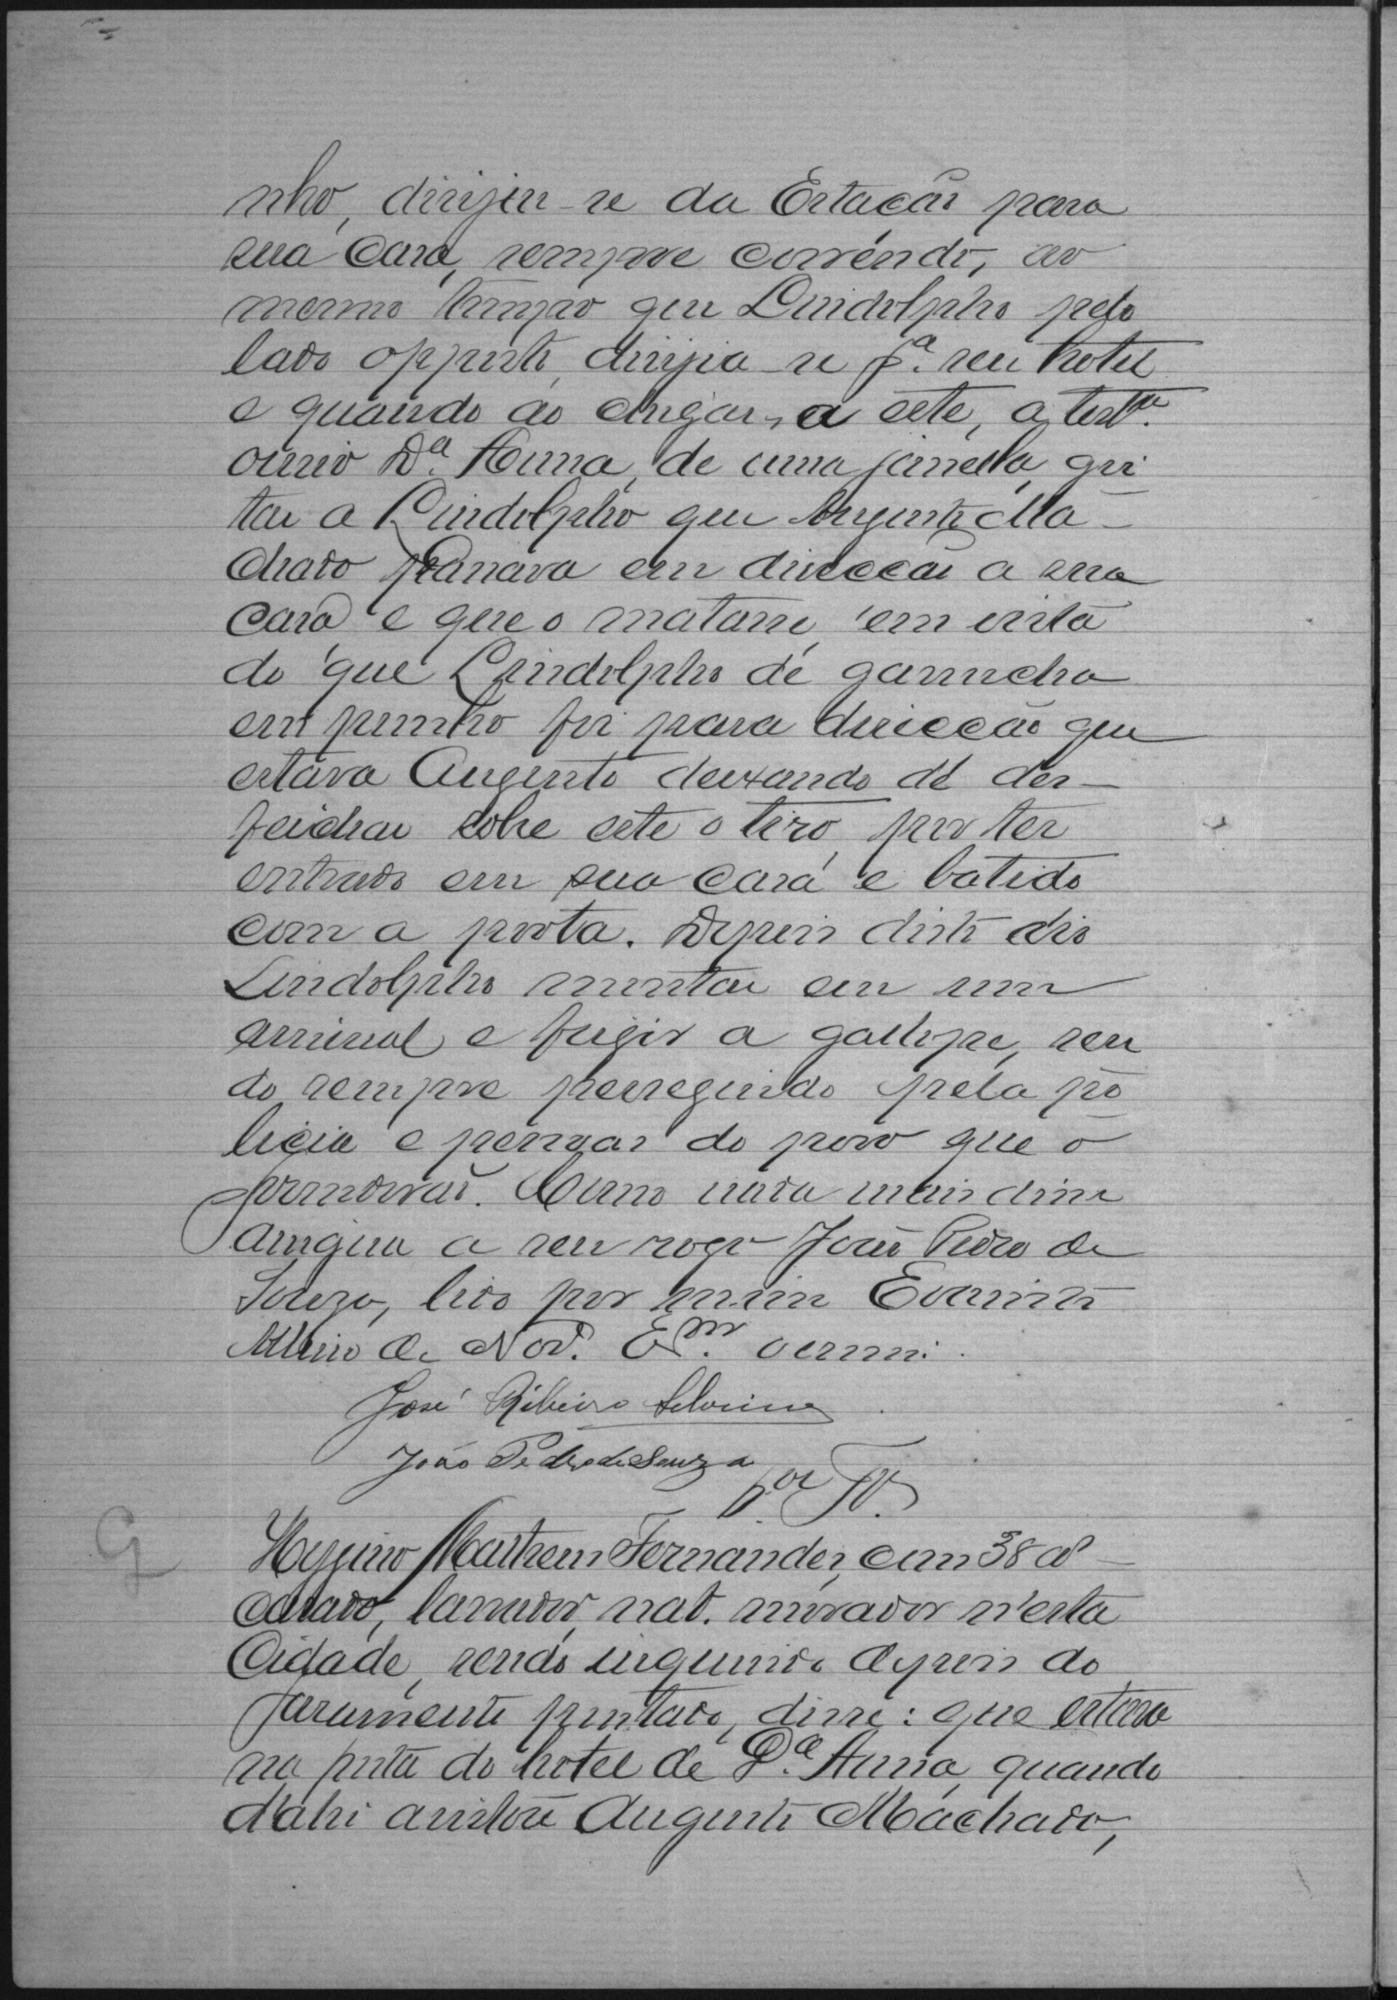 nho, dirijiu-se da Estação para
sua casa, sempre correndo, ao
mesmo tempo que Lindolpho pelo
lado opposto, dirijia-se pª. seu hotel
e quando ao chegar, a este, a testª.
ouvio Dª. Anna, de uma janella, gri
tar a Lindolpho que Augusto Ma-
chado passava em direcção a sua
casa e que o matasse, em vista
do que Lindolpho de garrucha
em punho foi para direcção que
estava Augusto deixando de des-
feichar sobre este o tiro, por ter
entrado em sua casa e batido
com a porta. Depois disto dis
Lindolpho montar em um
animal e fugir a gallope, sen
do sempre perseguido pela po
licia e pessoas do povo que o
prenderão. Como nada mais disse
assigna a seu rogo João Pedro de
Souza, lido por mim Evaristo
de Nov. Em. escrevi.
José Ribeiro
João Pedro de Souza
Hygino Martins Fernandes, com 38 aˢ
casado, lavrador, nat. morador n'esta
Cidade, sendo inquirido depois do
juramento prestado, disse: que estava
na porta do hotel de Dª. Anna, quando
d'ahi avistou Augusto Machado,